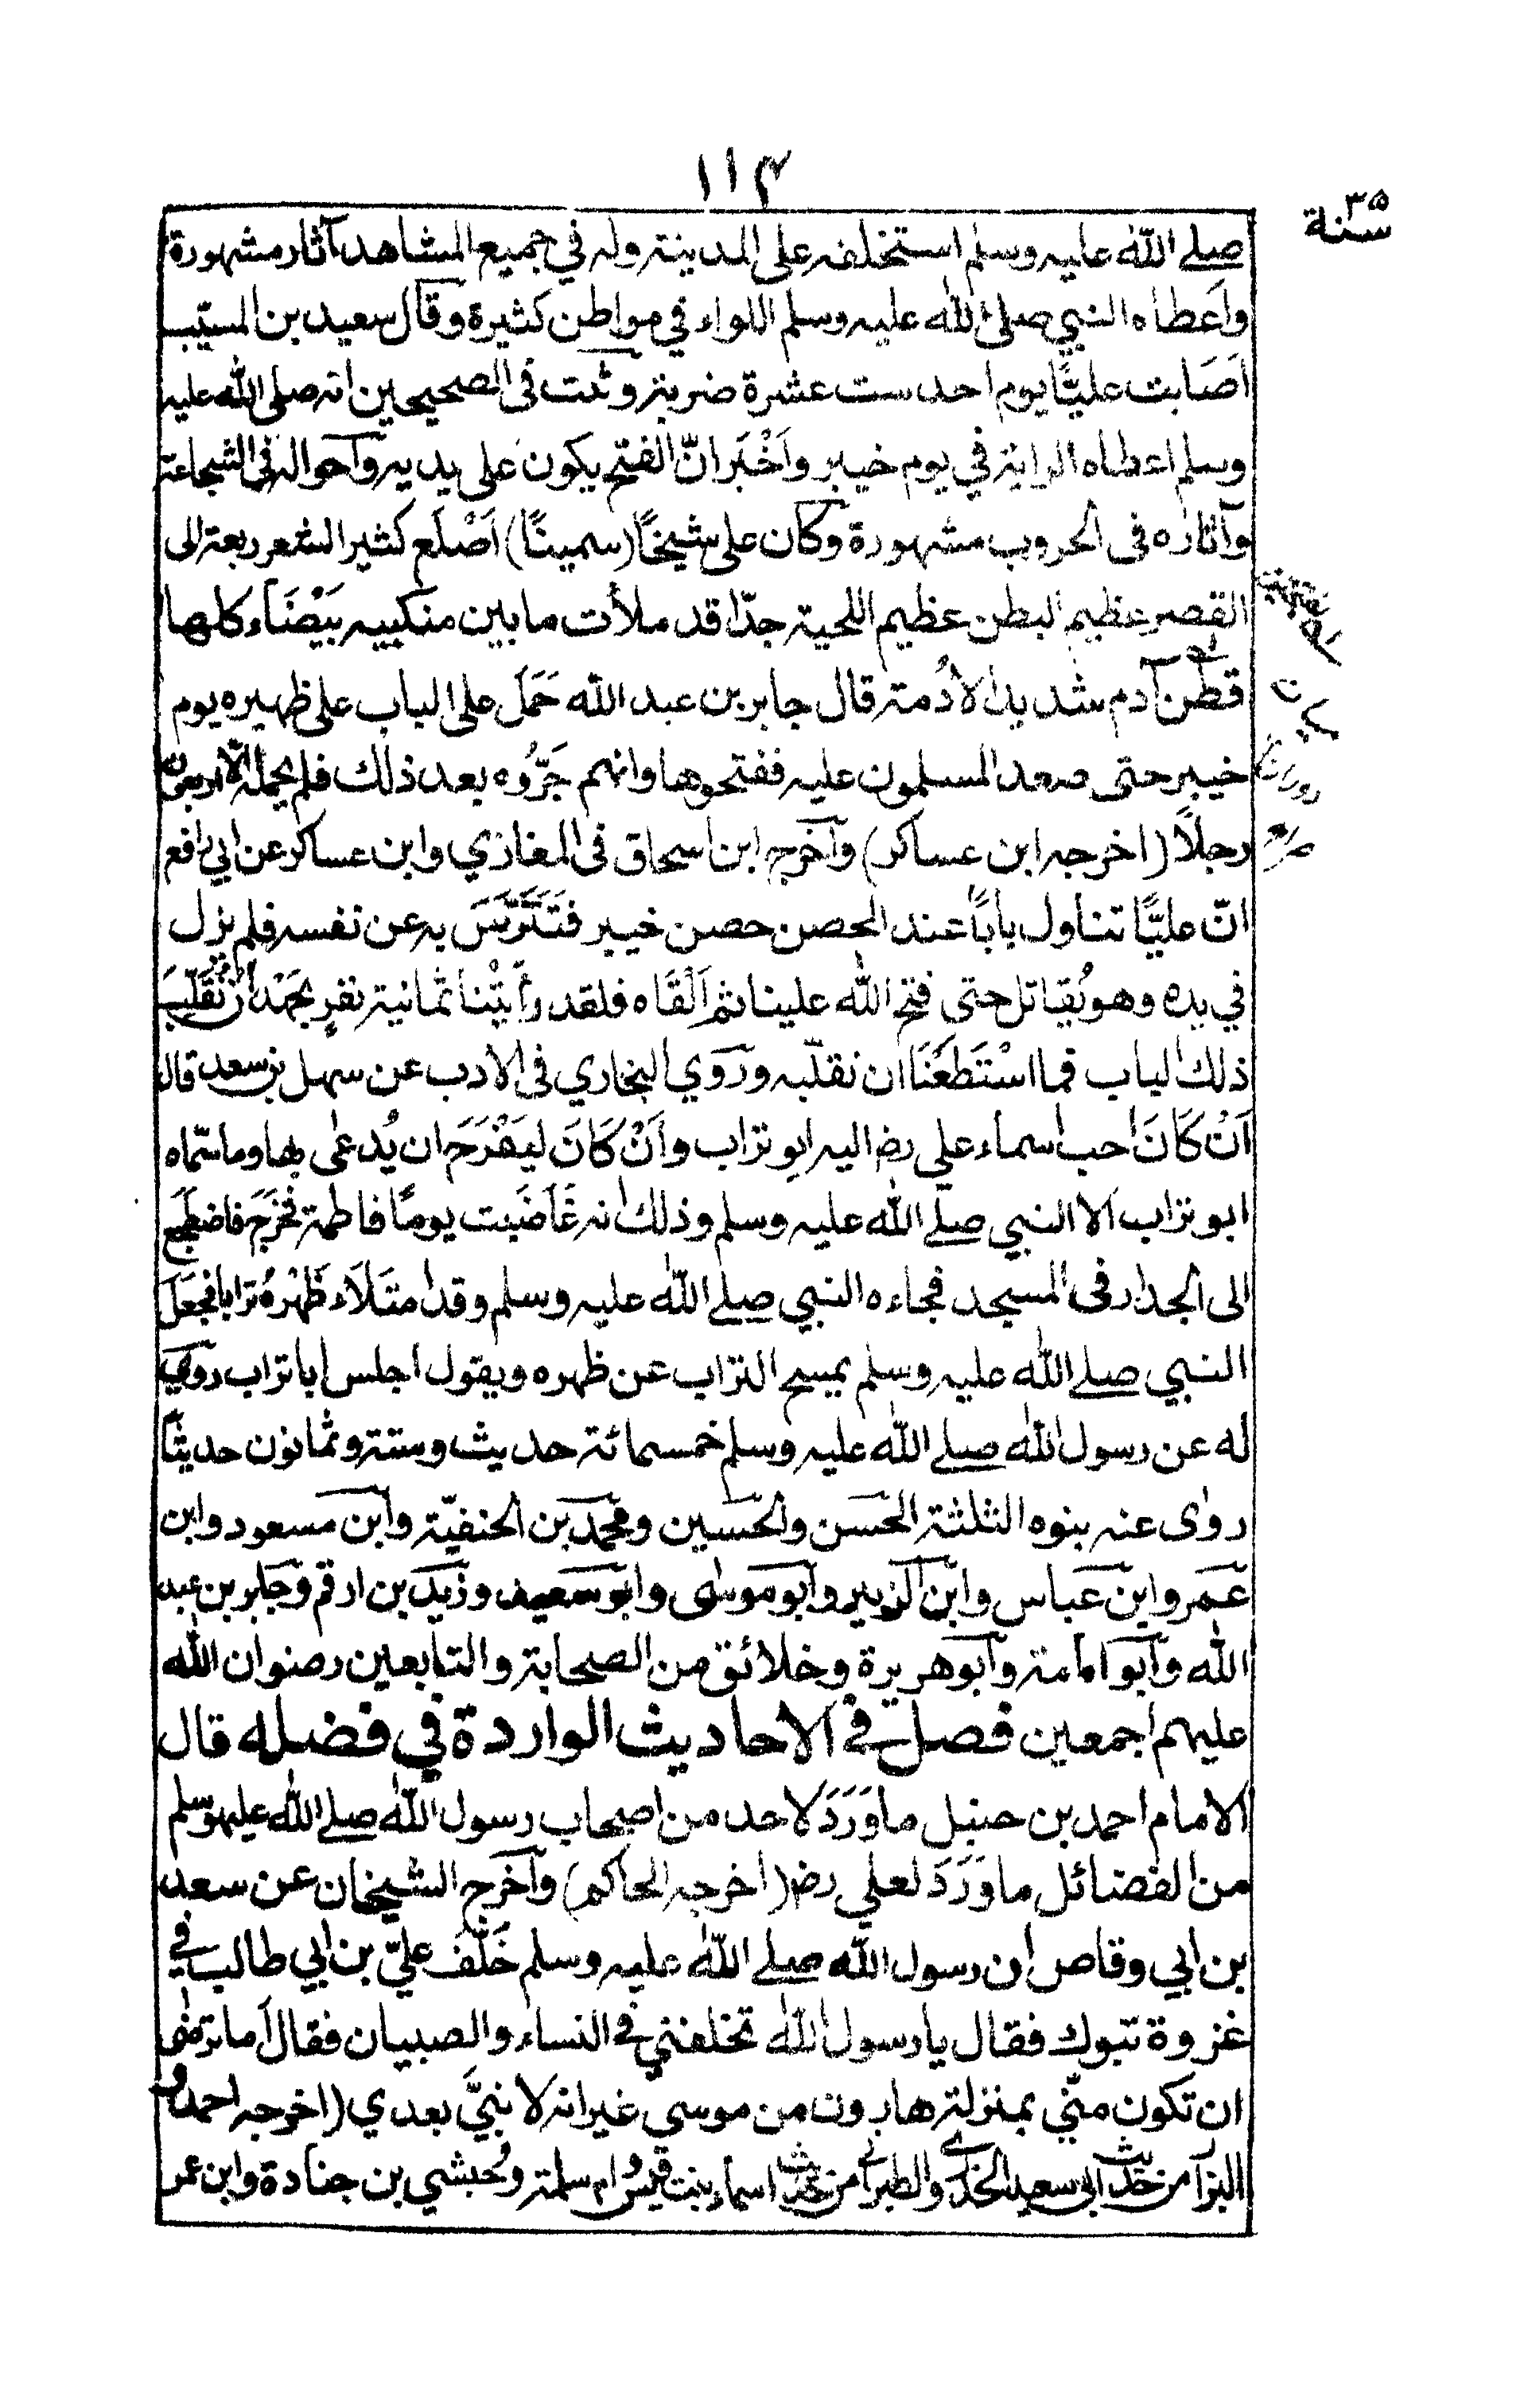 ١١٣
سنة ٣٥
صلے اللّٰه عليہ وسلم استخلفہ على المدينۃ ولہ في جميع المشاهد آثار مشهورة
واَعطاه النبي صلى اللّٰه عليہ وسلم اللواء في مواطن كثيرة وقال سعيد بن المسيّب
اَصَابت عليًّا يوم احد ست عشرة ضربۃ وثبت فى الصحيحين انہ صلى اللّٰه عليہ
وسلم اعطاه الرايۃ في يوم خيبر واَخْبَر انّ الفتح يكون على يديہ واحوالہ فى الشجاعۃ
وآثاره فى الحروب مشهورة وكان على شيخًا (سمينًا) اَصْلَع كثير الشعر ربعۃ الى
القصر عظيم البطن عظيم اللحيۃ جدّا قد ملأت ما بين منكبيہ بَيْضَاء كلها
قطن آدم شديد الاُدمۃ قال جابر بن عبد اللّٰه حَمَلَ على الباب على ظهره يوم
خيبر حتى صعد المسلمون عليہ ففتحوها وانهم جَرُّوه بعد ذلك فلم يحملہ الّا اربعون
رجلًا (اخرجہ ابن عساكر) وآخرج ابن اسحاق فى المغازي وابن عساكر عن ابي رافع
انّ عليًّا تناول بابًا عند الحصن حصن خيبر فتَتَرَّسَ بہ عن نفسہ فلم يزل
في يده وهو يُقاتل حتى فتح اللّٰه علينا ثم اَلْقَاه فلقد رأَيتُنا ثمانيۃ نفرٍ نجهَد ان نُقَلّبَ
ذلك الباب فما اسْتَطَعْنَا ان نقلّبہ ورَوَي البخاري فى الادب عن سهل بن سعد قال
اَنْ كَانَ احب اسماء علي رضـ اليہ ابو تراب واَنْ كَانَ ليَفْرَحَ ان يُدعى بها وما سمّاه
ابو تراب الا النبي صلے اللّٰه عليہ وسلم وذلك انہ غَاضَبت يومًا فاطمۃ فخَرَجَ فاضطجع
الى الجدار فى المسجد فجاءه النبي صلے اللّٰه عليہ وسلم وقد امتَلَاء ظَهْرهُ ترابا فجَعَلَ
النبي صلے اللّٰه عليہ وسلم يمسح التراب عن ظهره ويقول اجلس ابا تراب روي
له عن رسول اللّٰه صلے اللّٰه عليہ وسلم خمسمائۃ حديث وستۃ وثمانون حديثًا
روٰى عنہ بنوه الثلثۃ الحَسن والحُسين ومحمّد بن الحنفيّۃ وابن مسعود وابن
عمر وابن عَباس وابن الزبير وآبو موسٰى وابو سعيد وزيد بن ارقم وجابر بن عبد
اللّٰه وآبو امامۃ وآبو هريرة وخلائق من الصحابۃ والتابعين رضوان اللّٰه
عليہم اجمعين فصل في الاحاديث الواردة في فضله قال
الامام احمد بن حنبل ما وَرَدَ لاحد من اصحاب رسول اللّٰه صلے اللّٰه عليہ وسلم
من الفضائل ما وَرَدَ لعلي رضـ (اخرجہ الحاكم) وآخرج الشيخان عن سعد
بن ابي وقاص ان رسول اللّٰه صلے اللّٰه عليہ وسلم خَلَّفَ عليّ بن ابي طالب في
غزوة تبوك فقال يا رسول اللّٰه تخلفنني في النساء والصبيان فقال اَما ترضٰى
ان تكون منّي بمنزلۃ هارون من موسى غير انہ لا نبيَّ بعدي (اخرجہ احمد و
البزار من حديث ابي سعيد الخدري والطبراني من حديث اسماء بنت قيس وام سلمۃ وحُبشي بن جنادة وابن عمر